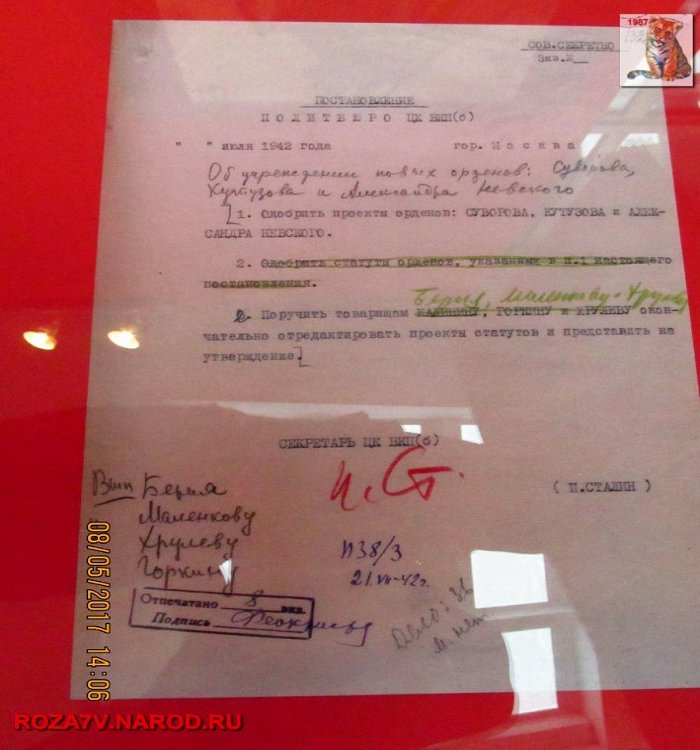 1987
СОВ.СЕКРЕТНО
Экз.№
ПОСТАНОВЛЕНИЕ
ПОЛИТБЮРО ЦК ВКП(б)
" " июля 1942 года гор. Москва
Об учреждении новых орденов: Суворова,
Кутузова и Александра Невского
1. Одобрить проекты орденов: СУВОРОВА, КУТУЗОВА и АЛЕК-
САНДРА НЕВСКОГО.
2. Одобрить статуты орденов, указанных в п.1 настоящего
постановления.
Берия, Маленкову
2. Поручить товарищам КАЛИНИНУ, ГОРКИНУ и ХРУЛЕВУ окон-
чательно отредактировать проекты статутов и представить на
утверждение.
СЕКРЕТАРЬ ЦК ВКП(б)
И. Ст.
(И.СТАЛИН)
Вып Берия
Маленкову
Хрулеву
Горкину
П38/3
21.VII-42г.
Отпечатано 8 экз.
Подпись
Дело:
08/05/2017 14:06
ROZA7V.NAROD.RU